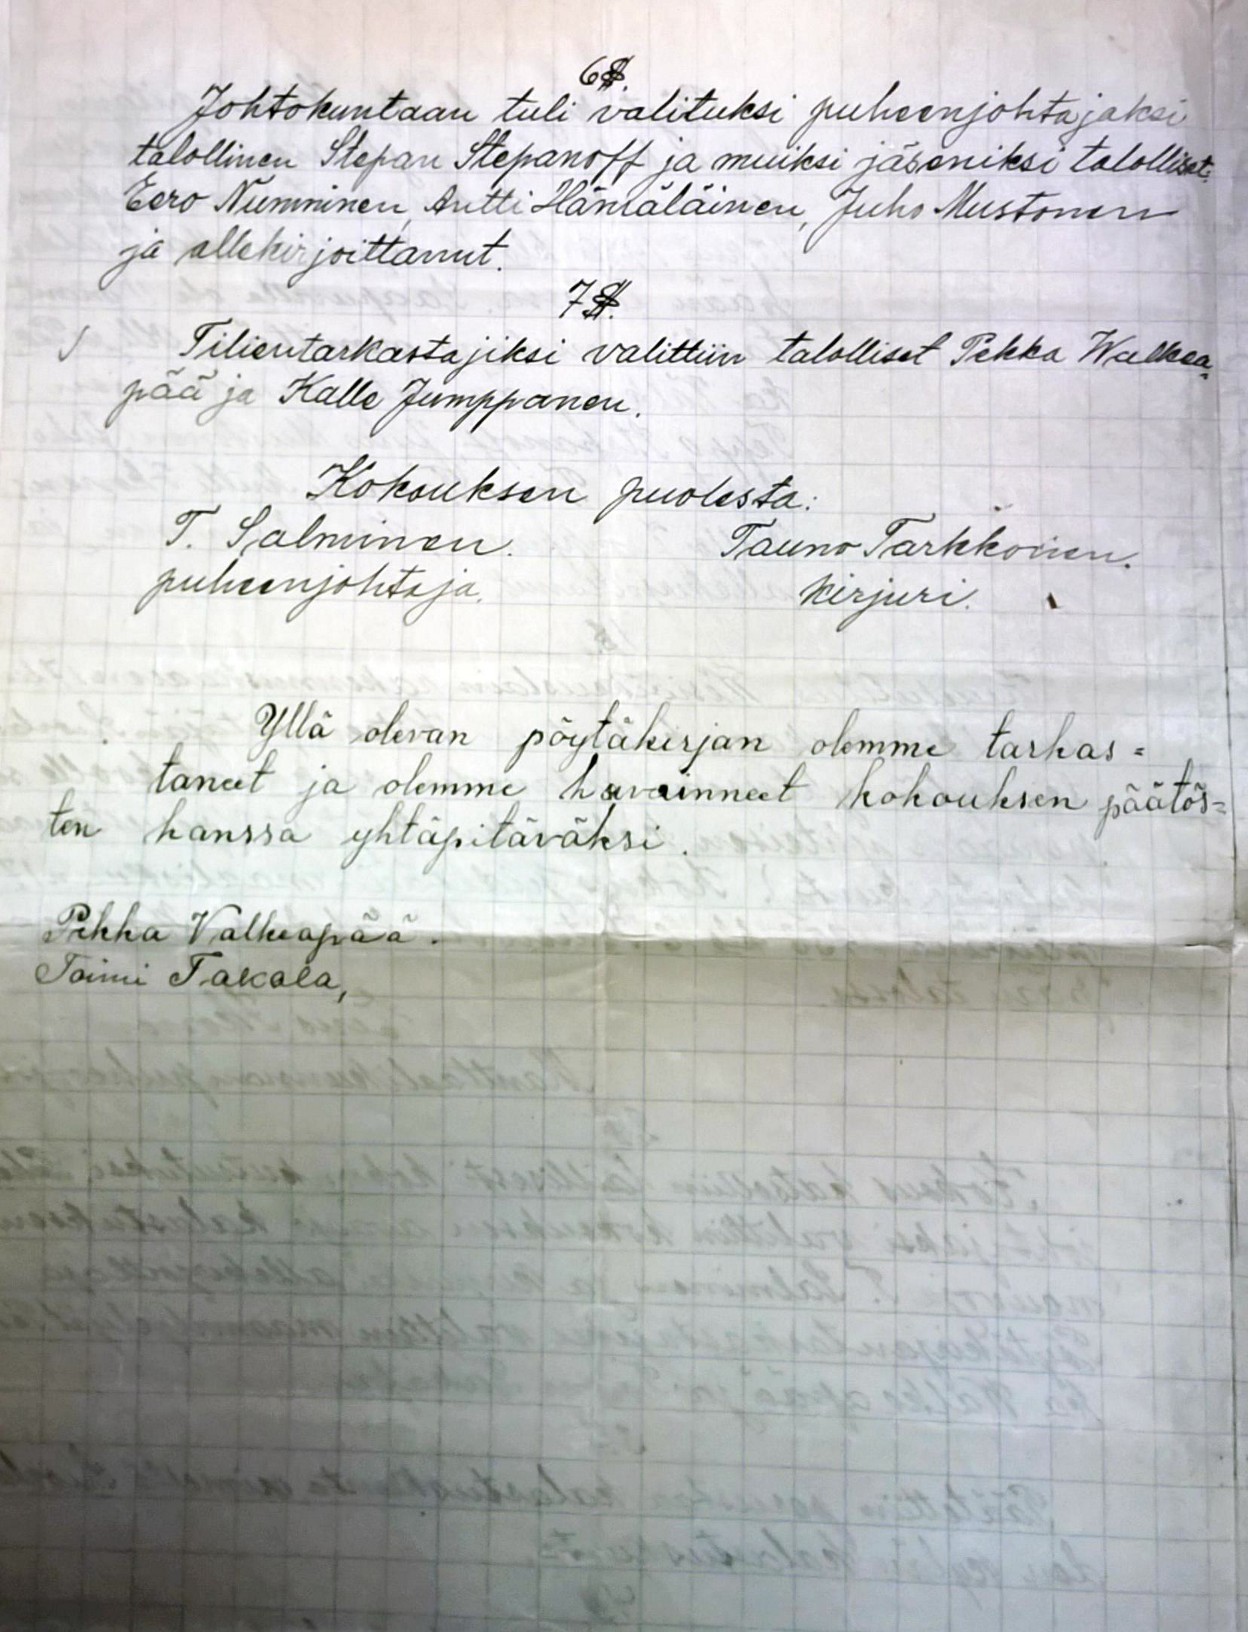 6§.
Johtokuntaan tuli valituksi puheenjohtajaksi
talollinen Stepan Stepanoff ja muiksi jäseniksi talolliset:
Eero Numminen, Antti Hämäläinen, Juho Mustonen
ja allekirjoittanut.
7§.
Tilientarkastajiksi valittiin talolliset Pekka Walkea=
pää ja Kalle Jumppanen.
Kokouksen puolesta:
T. Salminen. Tauno Tarkkonen.
puheenjohtaja. kirjuri.
Yllä olevan pöytäkirjan olemme tarkas=
taneet ja olemme havainneet kokouksen päätös=
ten kanssa yhtäpitäväksi.
Pekka Valkeapää.
Toimi Takala,